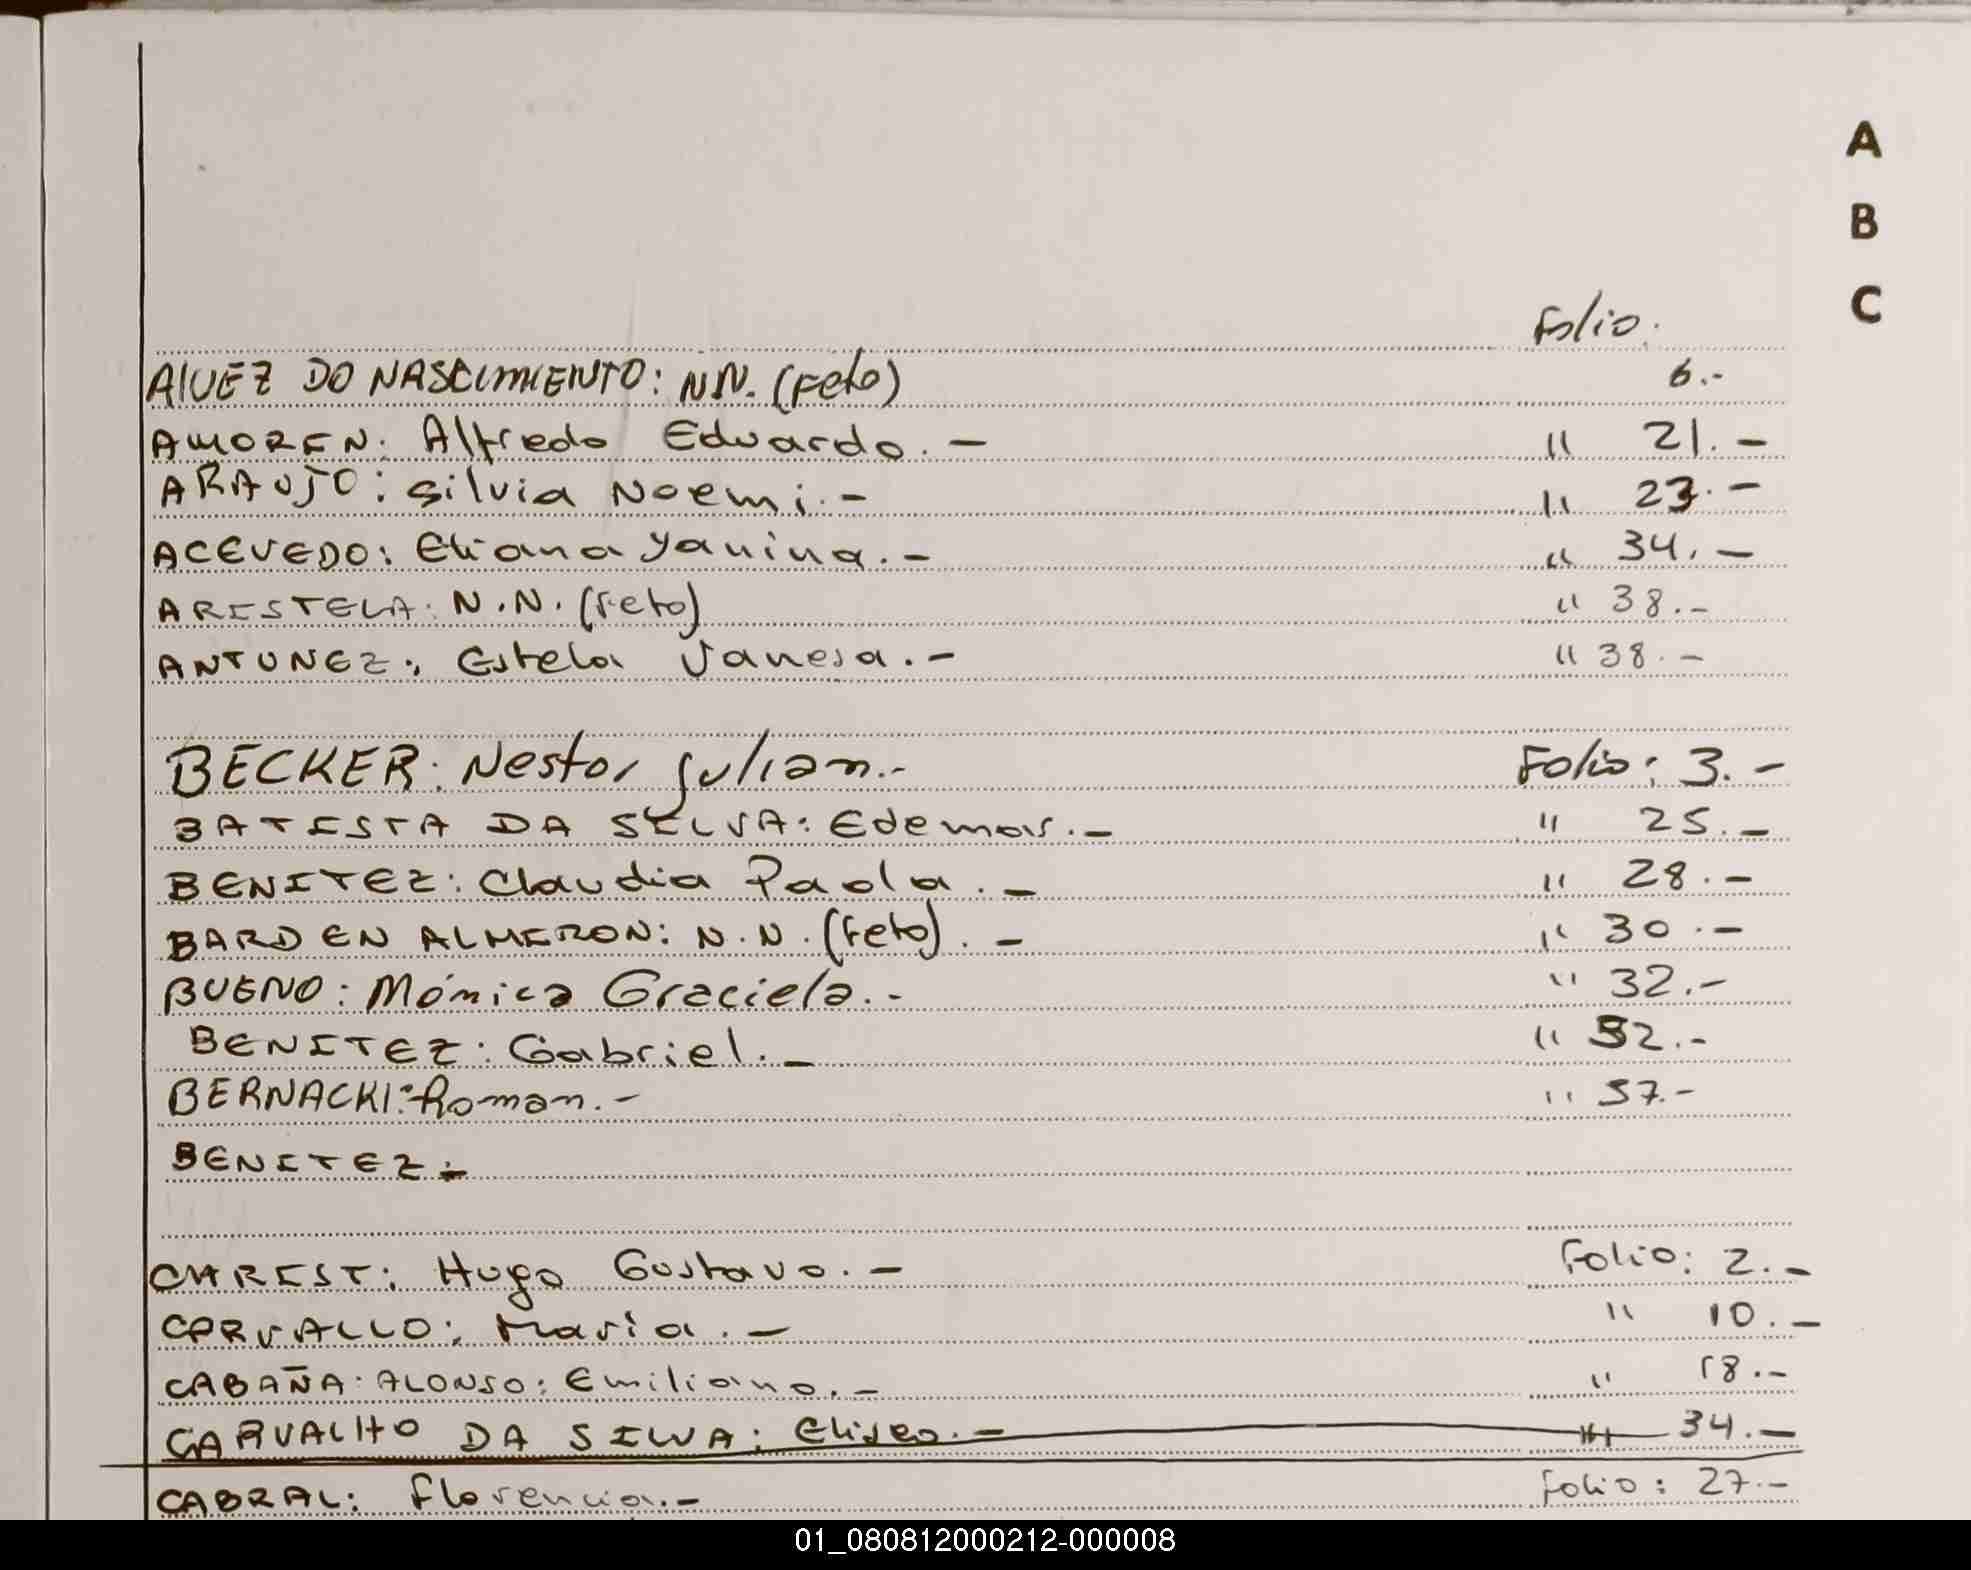 A
B
C
Folio.
AlVEZ DO NASCIMIENTO: NN. (Feto) 6.-
AMOREN: Alfredo Eduardo.- " 21.-
ARAUJO: Silvia Noemi.- " 23.-
ACEVEDO: Eliana Yanina.- " 34.-
ARISTELA: N.N. (Feto) " 38.-
ANTUNEZ: Estela Vanesa.- " 38.-
BECKER: Nestor Julian.- Folio: 3.-
BATISTA DA SILVA: Edemar.- " 25.-
BENITEZ: Claudia Paola.- " 28.-
BARDEN ALMERON: N.N. (Feto).- " 30.-
BUENO: Mónica Graciela.- " 32.-
BENITEZ: Gabriel.- " 32.-
BERNACKI: Roman.- " 37.-
BENITEZ:-
CHRIST: Hugo Gustavo.- Folio: 2.-
CARVALLO: Maria.- " 10.-
CABAÑA: ALONSO: Emiliano.- " 18.-
CARVALHO DA SILVA: Eliseo.- " 34.-
CABRAL: Florencia.- Folio: 27.-
01_080812000212-000008